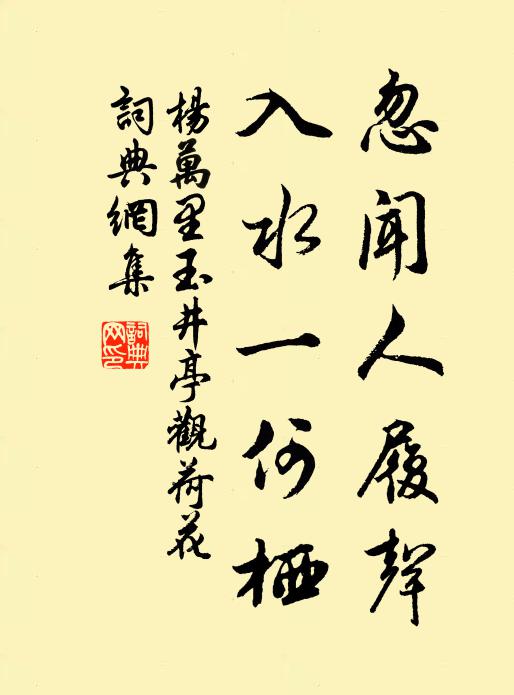 忽聞人履聲
入水一何栖
楊萬里玉井亭觀荷花
詞典網集
詞典網印